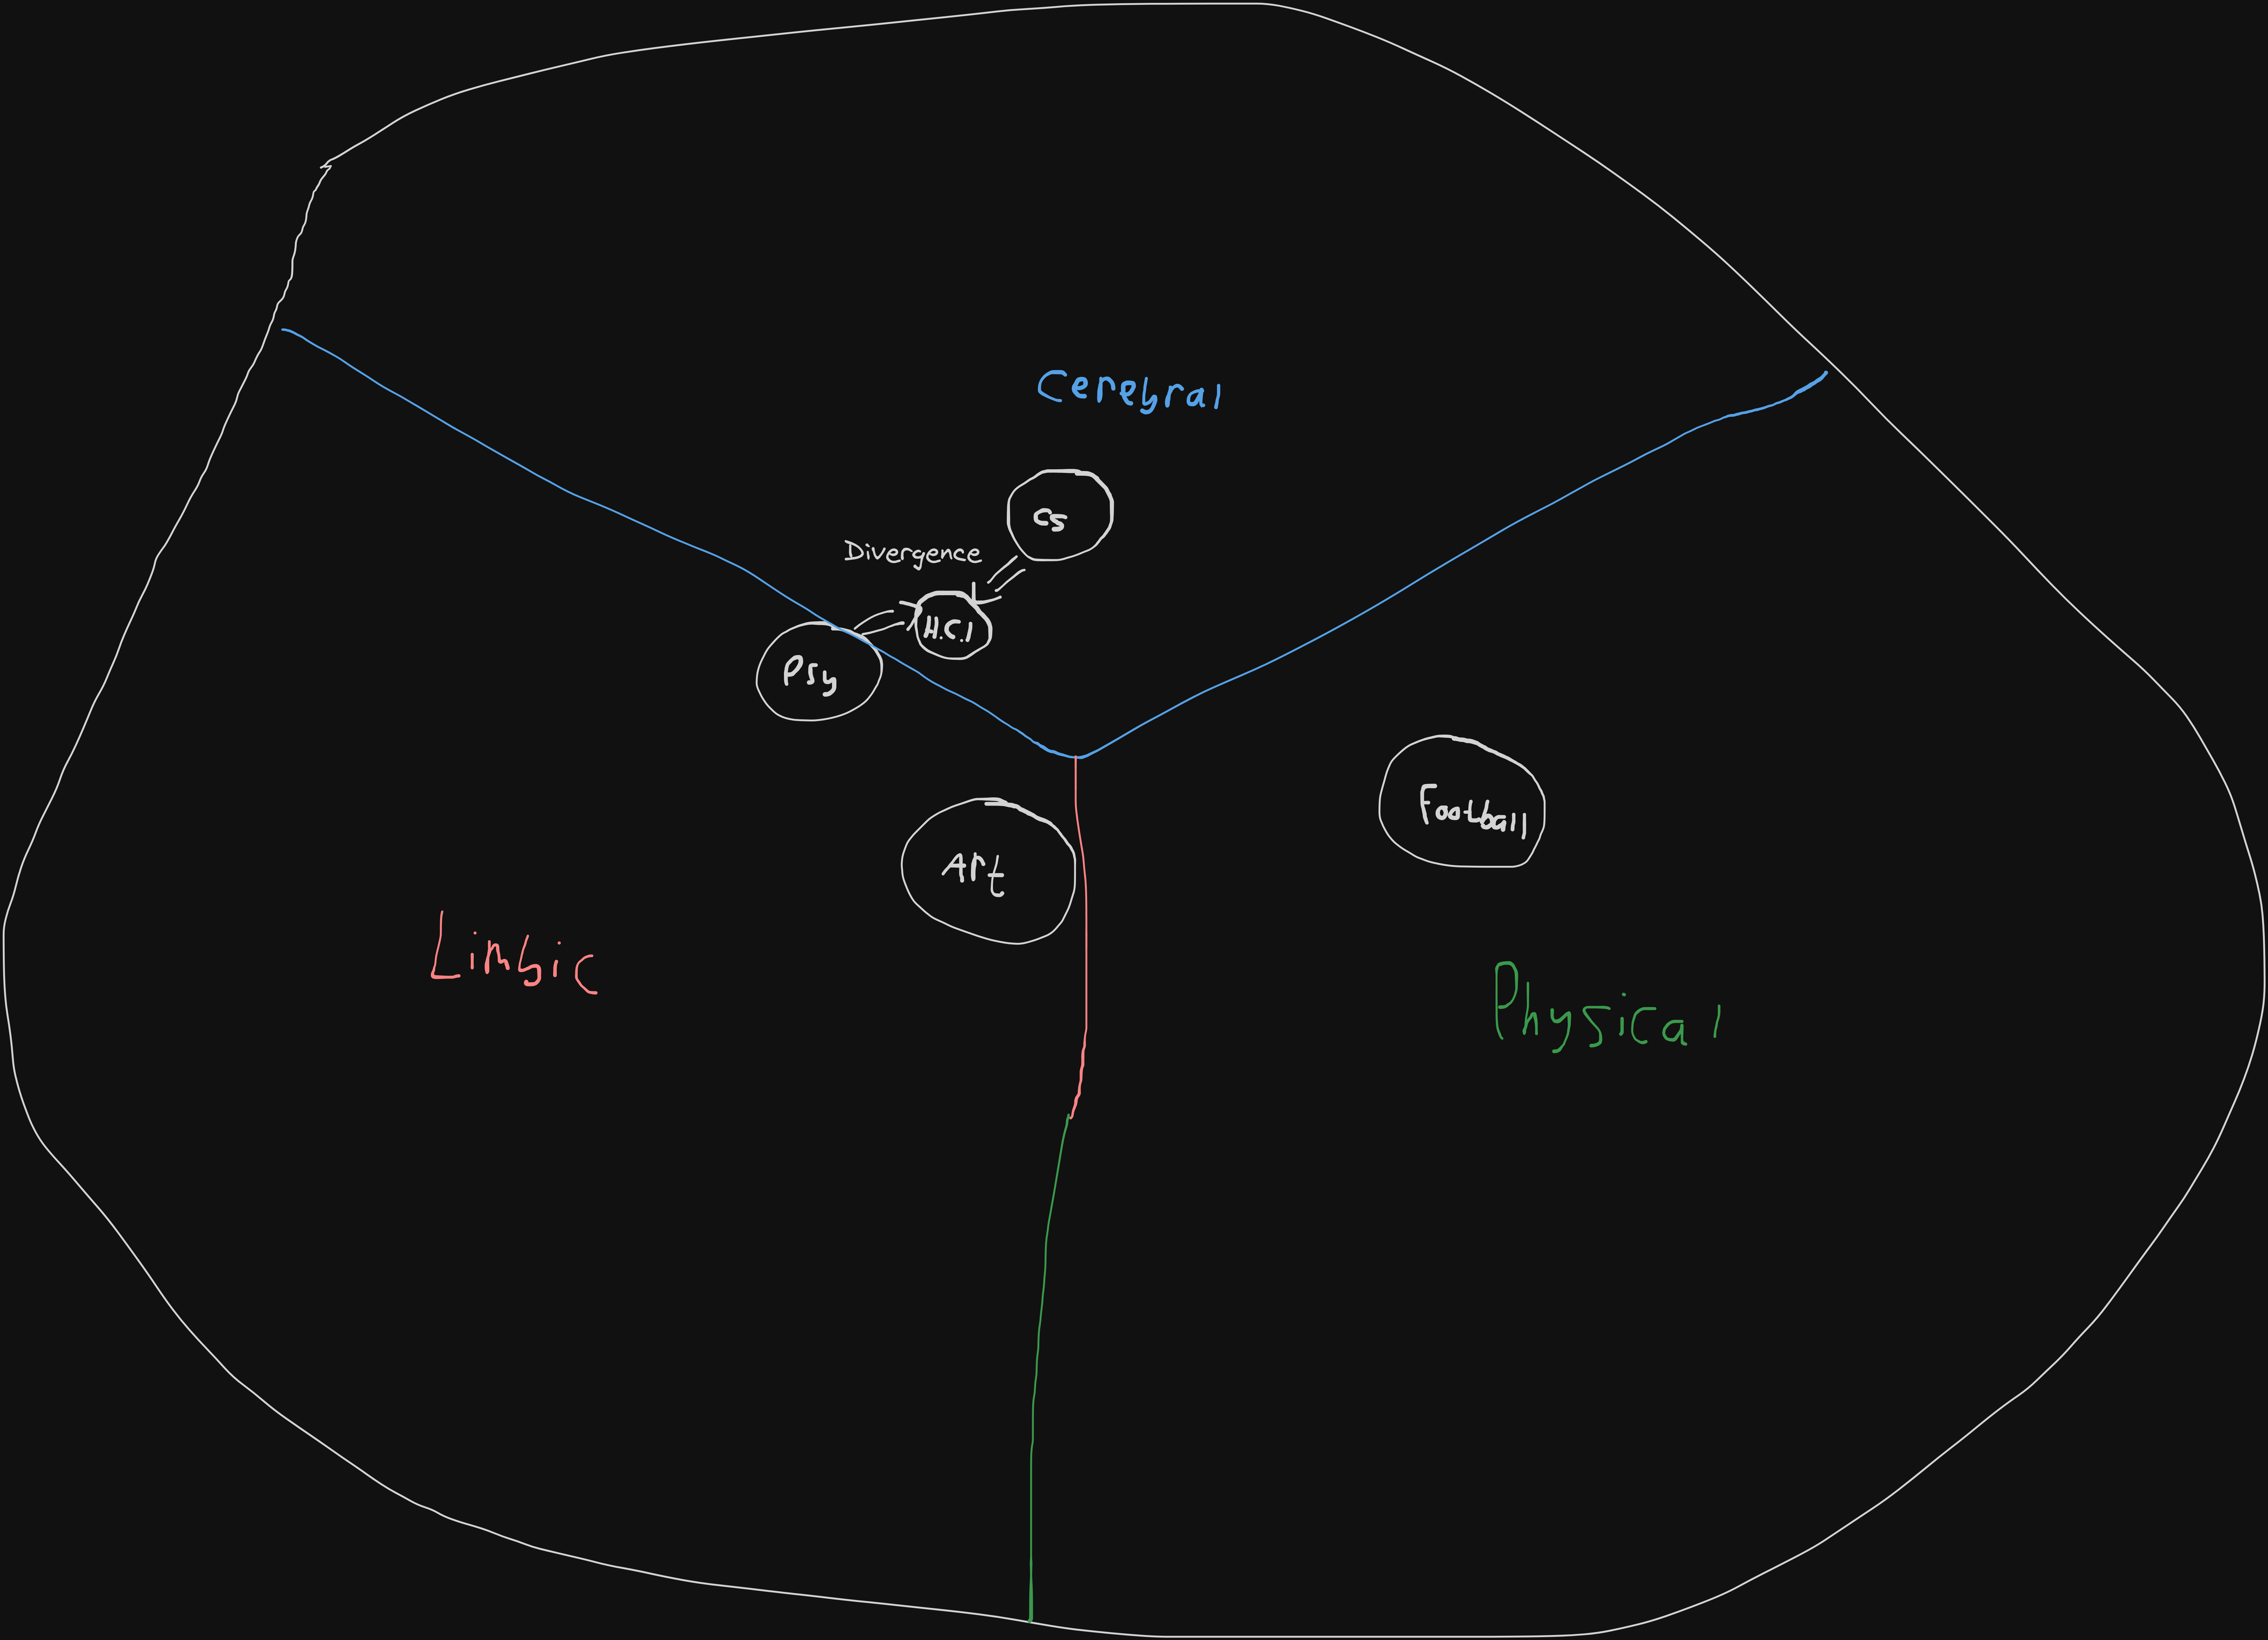 Cerebral
CS
Divergence
H.C.I
Psy
Football
Art
Limbic
Physical